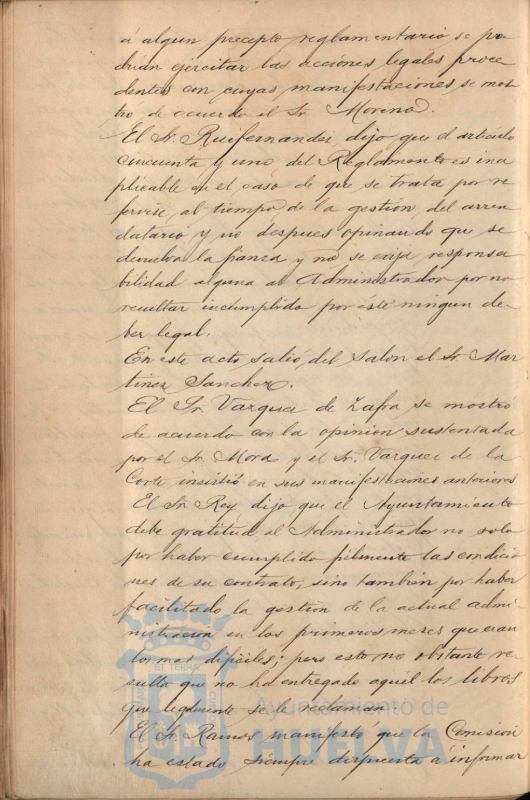 á algun precepto reglamentario se po
drian ejercitar las acciones legales proce
dentes con cuyas manifestaciones se mos
tro de acuerdo el Sr. Moreno.
El Sr. Ruifernandez dijo que el articulo
cincuenta y uno del Reglamento es ina
plicable en el caso de que se trata por re
ferirse al tiempo de la gestion del arren
datario y no despues opinando que se
devuelva la fianza y no se exija responsa
bilidad alguna al Administrador por no
resultar incumplido por éste ningun de-
ber legal.
En este acto salió del Salon el Sr. Mar
tinez Sanchez.
El Sr. Vazquez de Zafra se mostró
de acuerdo con la opinion sustentada
por el Sr. Mora y el Sr. Vazquez de la
Corte insistió en sus manifestaciones anteriores
El Sr. Rey dijo que el Ayuntamiento
debe gratitud al Administrador no solo
por haber cumplido fielmente las condicio
nes de su contrato, sino tambien por haber
facilitado la gestion de la actual admi
nistracion en los primeros meses que eran
los mas dificiles; pero esto no obstante re-
sulta que no ha entregado aquel los libros
que legalmente se le reclaman.
El Sr. Ramos manifestó que la Comision
ha estado siempre dispuesta á informar
Ayuntamiento de
HUELVA